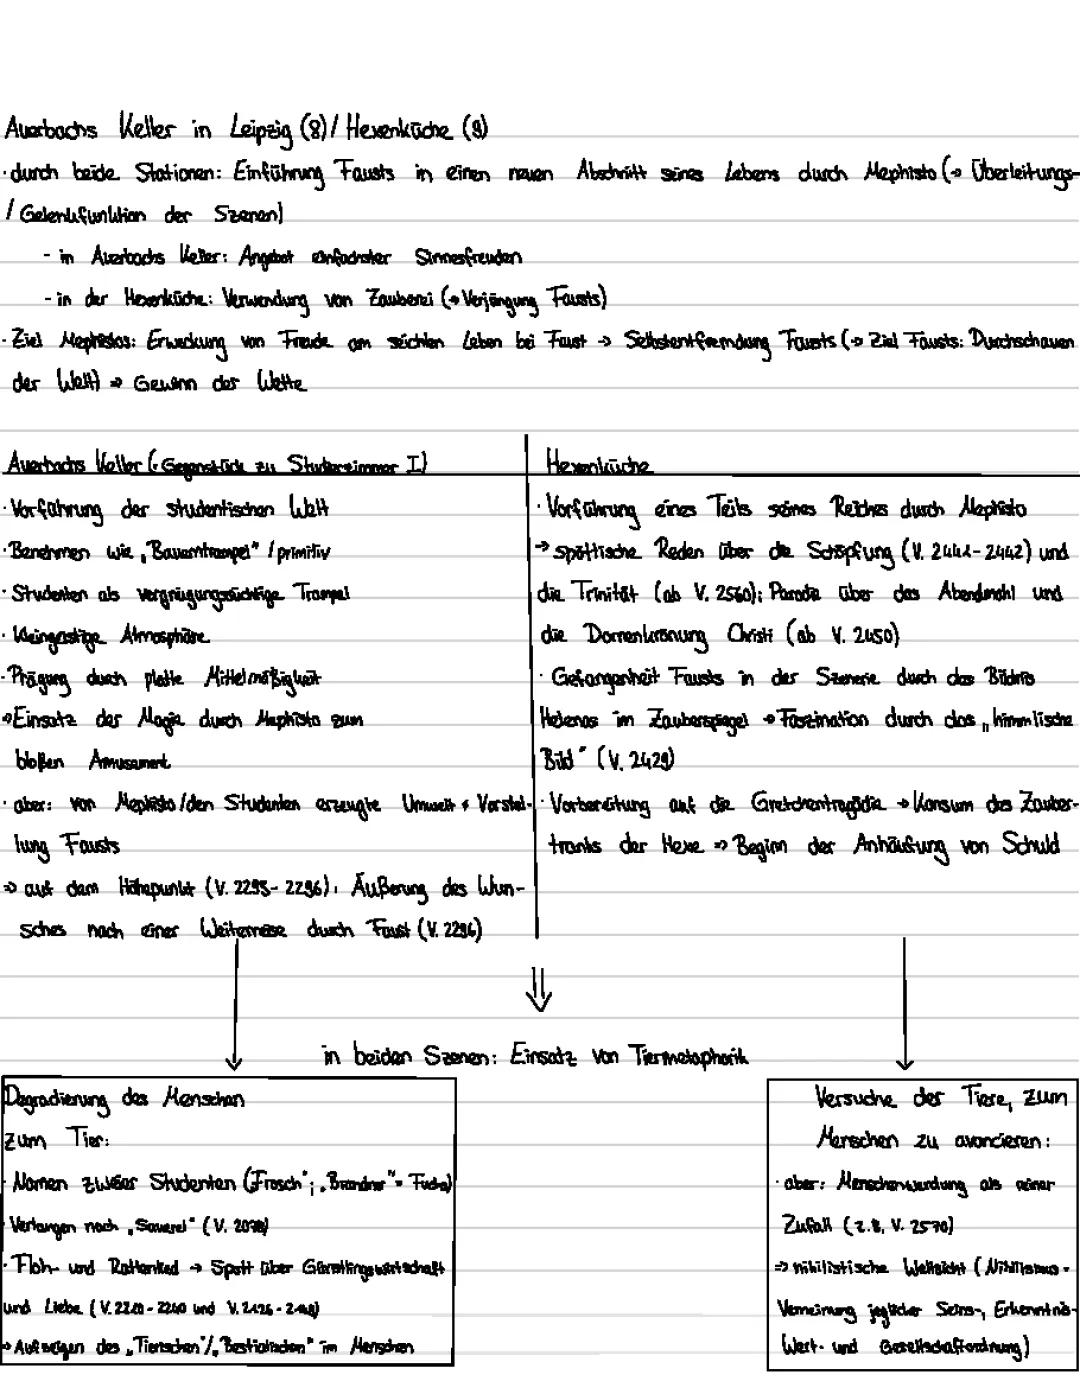 Auerbachs Keller in Leipzig (8)/ Hexenküche (9)
· durch beide Stationen: Einführung Fausts in einen neuen Abschnitt seines Lebens durch Mephisto (→ Überleitungs-
/ Gelenkfunktion der Szenen)
- in Auerbachs Keller: Angebot einfachster Sinnesfreuden
- in der Hexenküche: Verwendung von Zauberei (→ Verjüngung Fausts)
· Ziel Mephistos: Erweckung von Freude am seichten Leben bei Faust → Selbstentfremdung Fausts (→ Ziel Fausts: Durchschauen
der Welt) ⇒ Gewinn der Wette
Auerbachs Keller (· Gegenstück zu Studierzimmer I)
· Vorführung der studentischen Welt
· Benehmen wie „Bauerntrampel" / primitiv
· Studenten als vergnügungssüchtige Trampel
· Weingeistige Atmosphäre
· Prägung durch platte Mittelmäßigkeit
→ Einsatz der Magie durch Mephisto zum
bloßen Amusement
· aber: von Mephisto/den Studenten erzeugte Umwelt ≠ Vorstel-
lung Fausts
⇒ auf dem Höhepunkt (V. 2295-2296): Äußerung des Wun-
sches nach einer Weiterreise durch Faust (V. 2296)
Hexenküche
· Vorführung eines Teils seines Reiches durch Mephisto
→ spöttische Reden über die Schöpfung (V. 2441-2442) und
die Trinität (ab V. 2560); Parodie über das Abendmahl und
die Dornenkrönung Christi (ab V. 2450)
· Gefangenheit Fausts in der Szenerie durch das Bildnis
Helenas im Zauberspiegel → Faszination durch das „himmlische
Bild" (V. 2429)
· Vorbereitung auf die Gretchentragödie → Konsum des Zauber-
tranks der Hexe ⇒ Beginn der Anhäufung von Schuld
⇓
in beiden Szenen: Einsatz von Tiermetaphorik
Degradierung des Menschen
zum Tier:
· Namen zweier Studenten („Frosch"; „Brander" = Fuchs)
· Verlangen nach „Sauerei" (V. 2078)
· Floh- und Rattenlied → Spott über Günstlingswirtschaft
und Liebe
→ Aufzeigen des „Tierischen"/„Bestialischen" im Menschen
Versuche der Tiere, zum
Menschen zu avancieren:
· aber: Menschenwerdung als reiner
Zufall (z.B. V. 2570)
⇒ nihilistische Weltsicht (Nihilismus =
Verneinung jeglicher Seins-, Erkenntnis-
Wert- und Gesellschaftordnung)